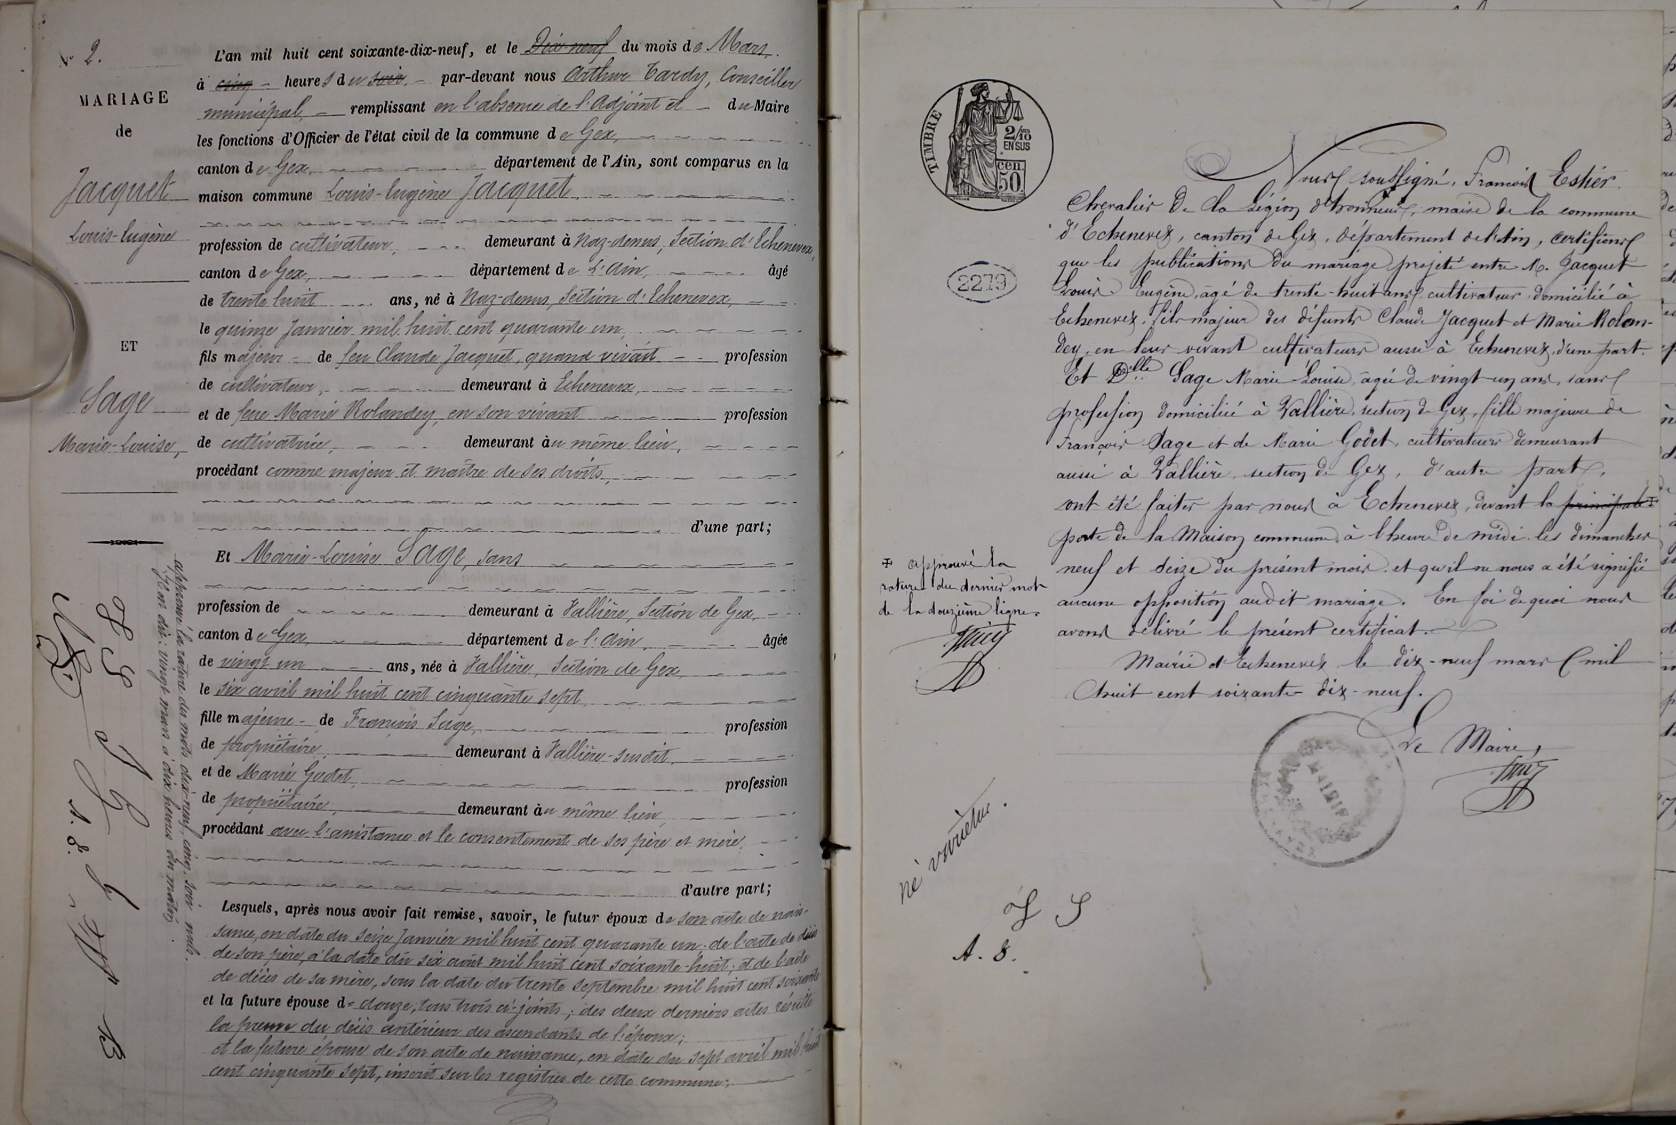 N° 2.
MARIAGE
de
Jacquet
Louis-Eugène
ET
Sage
Marie-Louise,
L'an mil huit cent soixante-dix-neuf, et le Dix neuf du mois de Mars,
à cinq heures du soir, par-devant nous Arthur Tardy, Conseiller
municipal, remplissant en l'absence de l'Adjoint et du Maire
les fonctions d'Officier de l'état civil de la commune de Gex,
canton de Gex, département de l'Ain, sont comparus en la
maison commune Louis-Eugène Jacquet
profession de cultivateur, demeurant à Naz-dessus, Section d'Echenevex,
canton de Gex, département de l'Ain, âgé
de trente huit ans, né à Naz-dessus, Section d'Echenevex,
le quinze Janvier mil huit cent quarante un
fils majeur de feu Claude Jacquet, quand vivait profession
de cultivateur, demeurant à Echenevex,
et de feue Marie Rolandey, en son vivant profession
de cultivatrice, demeurant au même lieu,
procédant comme majeur et maître de ses droits,
d'une part;
Et Marie-Louise Sage, sans
profession de demeurant à Vallière, Section de Gex,
canton de Gex, département de l'Ain, âgée
de vingt un ans, née à Vallière, Section de Gex,
le six avril mil huit cent cinquante sept
fille majeure de François Sage, profession
de propriétaire, demeurant à Vallière-susdit,
et de Marie Godet, profession
de propriétaire, demeurant au même lieu,
procédant avec l'assistance et le consentement de ses père et mère,
d'autre part;
Lesquels, après nous avoir fait remise, savoir, le futur époux de son acte de nais-
sance, en date du seize Janvier mil huit cent quarante un; de l'acte de décès
de son père, à la date du six août mil huit cent soixante-huit; et de l'acte
de décès de sa mère, sous la date du trente septembre mil huit cent soixante
et la future épouse de douze, tous trois ci-joints; des deux derniers actes résulte
la preuve du décès antérieur des ascendants de l'époux;
et la future épouse de son acte de naissance, en date du sept avril mil huit
cent cinquante sept, inscrit sur les registres de cette commune;
approuvé la rature des mots dix-neuf, cinq, soir nuls.
vingt mars à dix heures du matin
TIMBRE
2/10 EN SUS
50 cen
2279
Nous soussigné, François Estier
Chevalier de la Légion d'honneur, maire de la commune
d'Echenevex, canton de Gex, département de l'Ain, certifions
que les publications du mariage projeté entre M. Jacquet
Louis Eugène, âgé de trente-huit ans, cultivateur, domicilié à
Echenevex, fils majeur des défunts Claude Jacquet et Marie Rolan-
dey, en leur vivant cultivateurs aussi à Echenevex, d'une part.
Et Delle Sage Marie Louise, âgée de vingt un ans, sans
profession domiciliée à Vallière, section de Gex, fille majeure de
François Sage et de Marie Godet, cultivateurs demeurant
aussi à Vallière, section de Gex, d'autre part,
ont été faites par nous à Echenevex, devant la principale
porte de la Maison commune, à l'heure de midi, les dimanches
neuf et seize du présent mois et qu'il ne nous a été signifié
aucune opposition audit mariage. En foi de quoi nous
avons délivré le présent certificat.
Mairie d'Echenevex le dix-neuf mars mil
huit cent soixante-dix-neuf.
Le Maire,
approuvé la
rature du dernier mot
de la douzième ligne.
né varietur.
A. S.